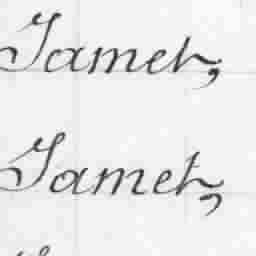 Jamet,
Jamet,